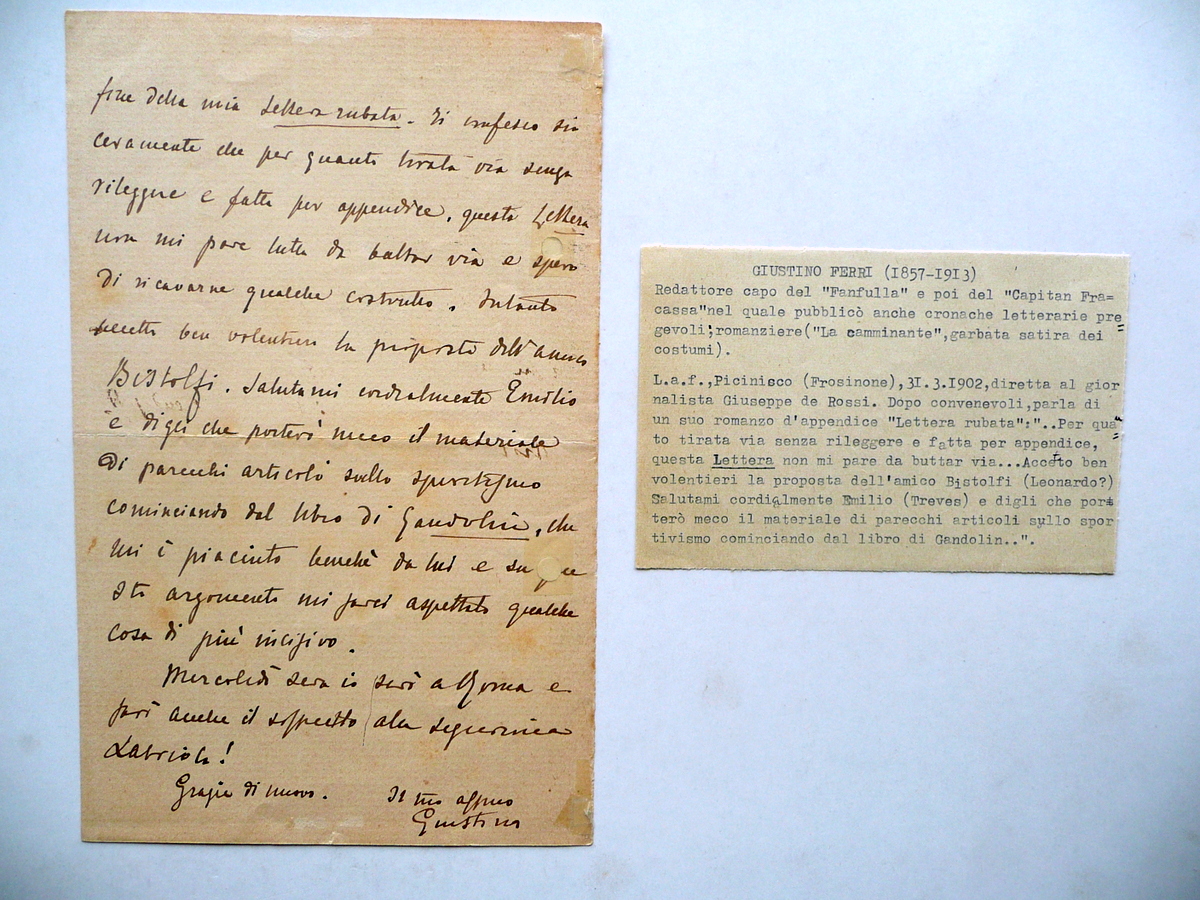 fine della mia Lettera rubata. Ti confesso sin
ceramente che per quanto tirata via senza
rileggere e fatta per appendice, questa Lettera
non mi pare tutta da buttar via e spero
di ricavarne qualche costrutto. Intanto
accetto ben volentieri la proposta dell'amico
Bistolfi. Salutami cordialmente Emilio
e digli che porterò meco il materiale
di parecchi articoli sullo sportismo
cominciando dal libro di Gandolin, che
mi è piaciuto benchè da lui e su que
sto argomento mi sarei aspettato qualche
cosa di più incisivo.
Mercoledì sera io sarò a Roma e
farò anche il soffietto alla signorina
Labriola!
Grazie di nuovo.
Il tuo affmo
Giustino
GIUSTINO FERRI (1857-1913)
Redattore capo del "Fanfulla" e poi del "Capitan Fra=
cassa"nel quale pubblicò anche cronache letterarie pre
gevoli;romanziere("La camminante",garbata satira dei
costumi).
L.a.f.,Picinisco (Frosinone),31.3.1902,diretta al gior
nalista Giuseppe de Rossi. Dopo convenevoli,parla di
un suo romanzo d'appendice "Lettera rubata":"..Per qua
to tirata via senza rileggere e fatta per appendice,
questa Lettera non mi pare da buttar via...Accetto ben
volentieri la proposta dell'amico Bistolfi (Leonardo?)
Salutami cordialmente Emilio (Treves) e digli che por
terò meco il materiale di parecchi articoli sullo spor
tivismo cominciando dal libro di Gandolin..".